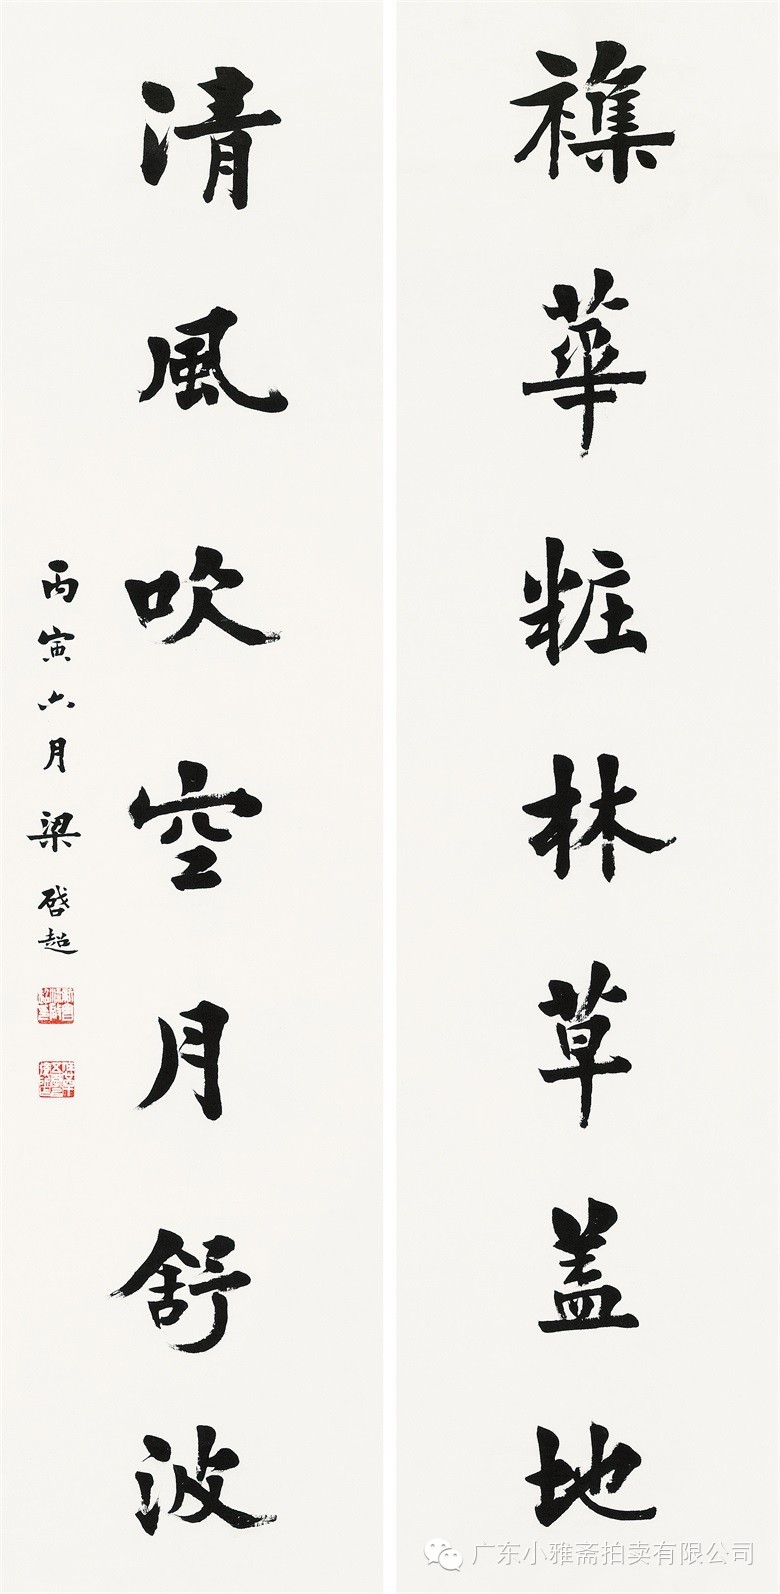 襍華粧林草盖地
清風吹空月舒波
丙寅六月梁啓超
广东小雅斋拍卖有限公司